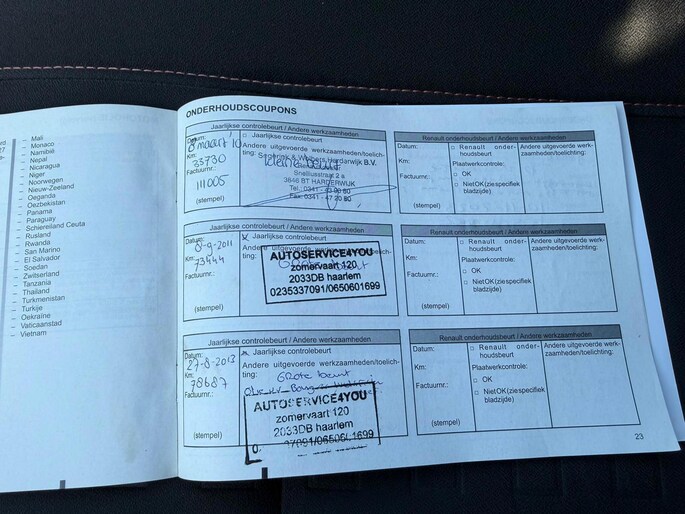 Mali
Monaco
Namibië
Nepal
Nicaragua
Niger
Noorwegen
Nieuw-Zeeland
Oeganda
Oezbekistan
Panama
Paraguay
Schiereiland Ceuta
Rusland
Rwanda
San Marino
El Salvador
Soedan
Zwitserland
Tanzania
Thailand
Turkmenistan
Turkije
Oekraïne
Vaticaanstad
Vietnam
ONDERHOUDSCOUPONS
Jaarlijkse controlebeurt / Andere werkzaamheden
Datum:
8 maart 10
Km:
23730
Factuurnr.:
111005
(stempel)
Jaarlijkse controlebeurt
Andere uitgevoerde werkzaamheden/toelichting:
Harderwijk B.V.
Kleine beurt
Snelliusstraat 2 a
3846 BT HARDERWIJK
Tel. 0341 -
Fax. 0341 - 47 20 80
Renault onderhoudsbeurt / Andere werkzaamheden
Datum:
Km:
Factuurnr.:
(stempel)
Renault onderhoudsbeurt
Plaatwerkcontrole:
OK
NietOK(ziespecifiek bladzijde)
Andere uitgevoerde werkzaamheden/toelichting:
Jaarlijkse controlebeurt / Andere werkzaamheden
Datum:
8-9-2011
Km:
73444
Factuurnr.:
(stempel)
x Jaarlijkse controlebeurt
Andere uitgevoerde werkzaamheden/toelichting:
AUTOSERVICE4YOU
zomervaart 120
2033DB haarlem
0235337091/0650601699
Renault onderhoudsbeurt / Andere werkzaamheden
Datum:
Km:
Factuurnr.:
(stempel)
Renault onderhoudsbeurt
Plaatwerkcontrole:
OK
NietOK(ziespecifiek bladzijde)
Andere uitgevoerde werkzaamheden/toelichting:
Jaarlijkse controlebeurt / Andere werkzaamheden
Datum:
27-8-2013
Km:
78687
Factuurnr.:
(stempel)
x Jaarlijkse controlebeurt
Andere uitgevoerde werkzaamheden/toelichting:
GRote beurt
AUTOSERVICE4YOU
zomervaart 120
2033DB haarlem
37091/0650601699
Renault onderhoudsbeurt / Andere werkzaamheden
Datum:
Km:
Factuurnr.:
(stempel)
Renault onderhoudsbeurt
Plaatwerkcontrole:
OK
NietOK(ziespecifiek bladzijde)
Andere uitgevoerde werkzaamheden/toelichting:
23